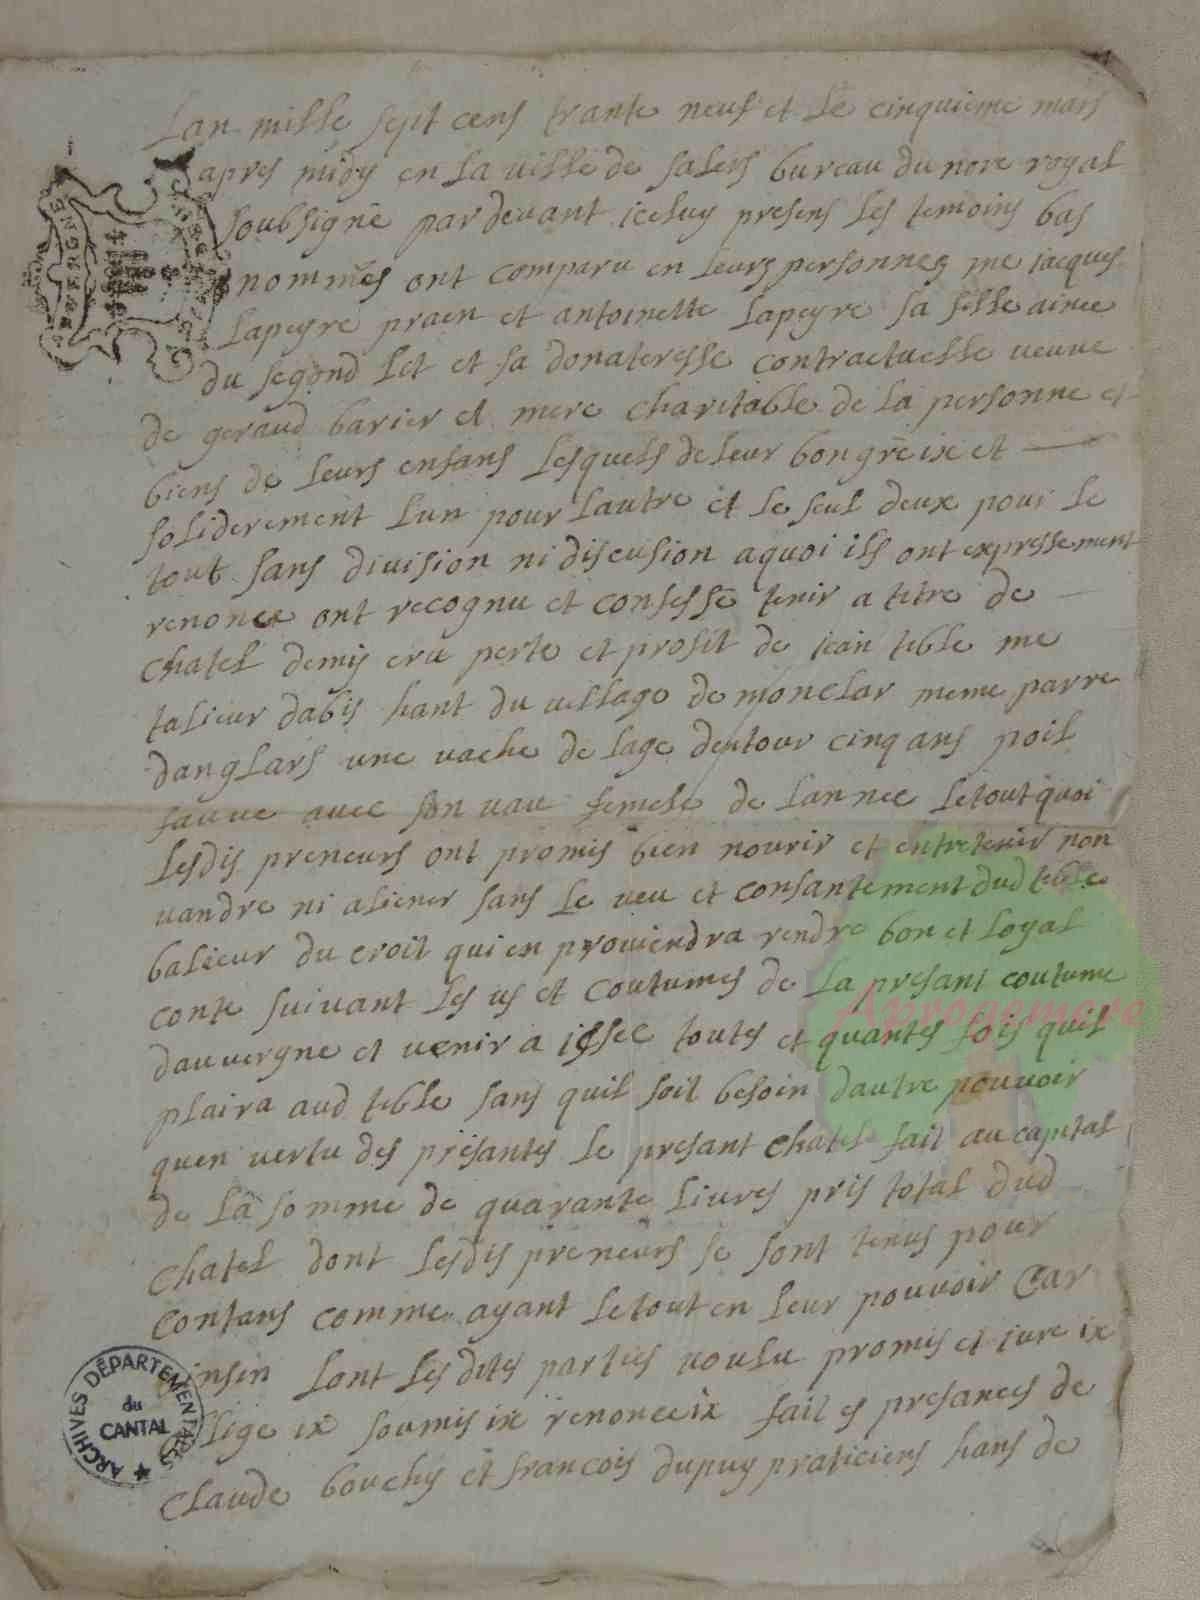 Lan mille sept cens trante neuf et le cinquieme mars
apres midy en la ville de salers bureau du nore royal
soubsigné pardevant iceluy presens les temoins bas
nommés ont comparu en leurs personnes me jacques
Lapeyre praen et antoinette Lapeyre sa fille ainee
du segond lit et sa donateresse contractuelle veuve
de geraud barier et mere charitable de la personne et
biens de leurs enfans lesquels de leur bon gré ix et
soliderement lun pour lautre et le seul deux pour le
tout sans division ni discusion aquoi ils ont expressement
renonce ont recognu et confessé tenir a titre de
chatel demy cru perte et profit de jean teble me
talieur dabis hant du village de monclar meme parre
danglars une vache de lage dentour cinq ans poil
fauve avec son vau femele de lannee letout quoi
lesdis preneurs ont promis bien nourir et entretenir non
vandre ni aliener sans le veu et consantement dud teble
balieur du croit qui en proviendra rendre bon et loyal
conte suivant les us et coutumes de la presant coutume
dauvergne et venir a issee toutes et quantes fois quil
plaira aud teble sans quil soit besoin dautre pouvoir
quen vertu des présantes le presant chatel fait au capital
de la somme de quarante livres pris total dud
chatel dont lesdis preneurs se sont tenus pour
contans comme ayant letout en leur pouvoir car
insin lont les dites parties voulu promis et jure ix
oblige ix soumis ix renonce ix fait es presances de
claude bouchy et francois dupuy praticiens hans de
AUVERGNE
ARCHIVES DÉPARTEMENTALES
du
CANTAL
Aprogemere